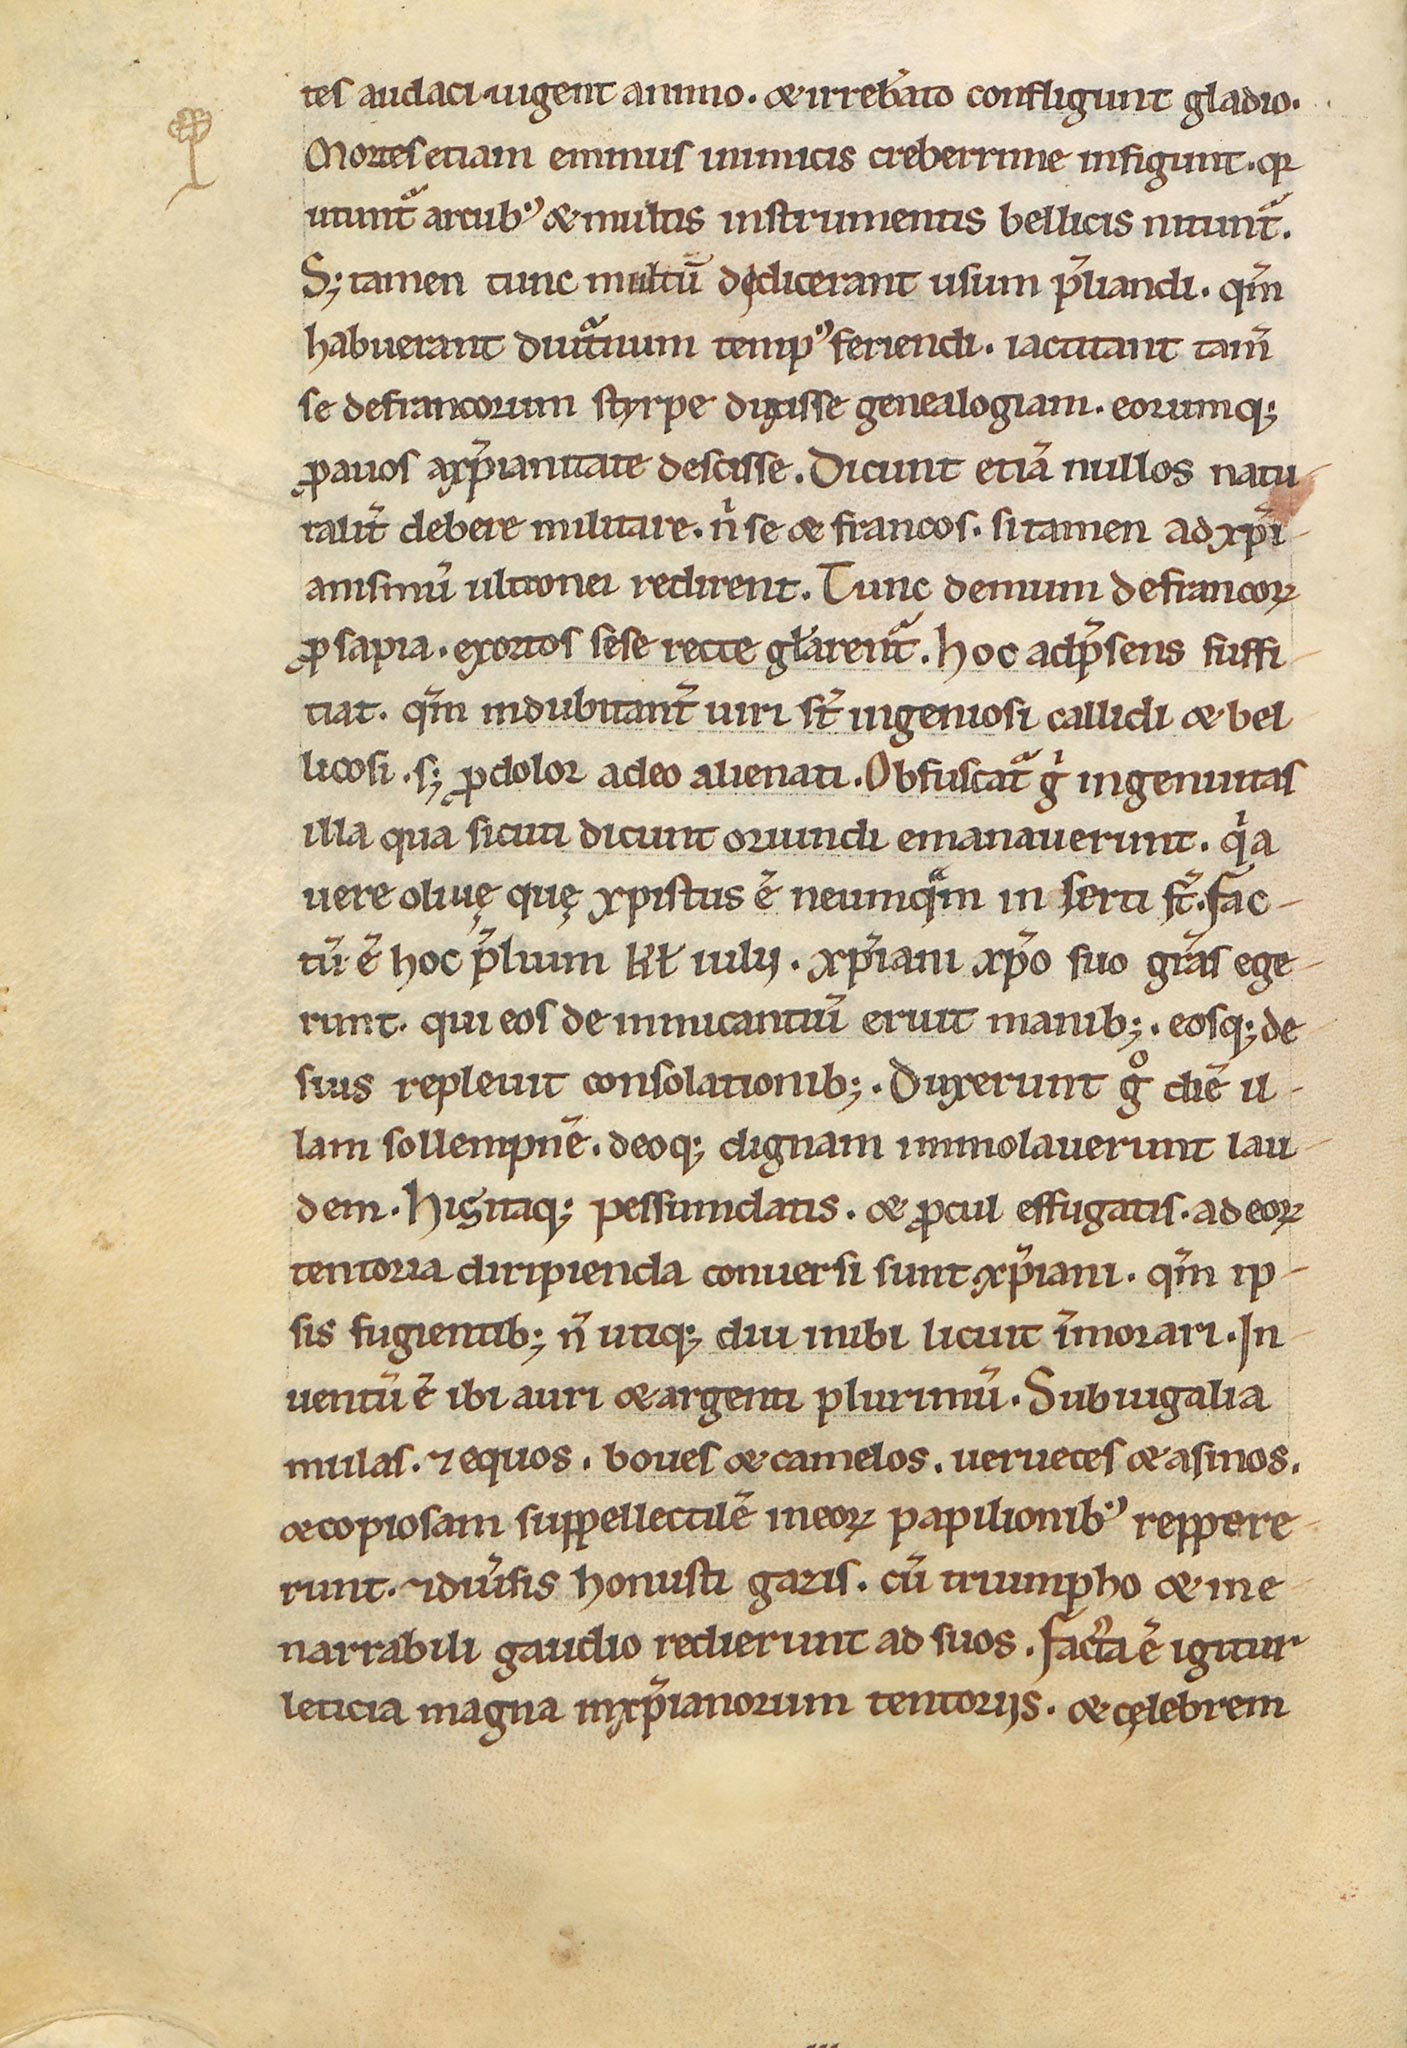 tes audaci uigent animo. & irreb̄ato confligunt gladio.
Mortes etiam eminus inimicis creberrime infigunt. qꝛ
utunt᷑ arcubꝰ & multis instrumentis bellicis nitunt᷑.
S; tamen tunc multū dedicerant usum p̄liandi. qm̄
habuerant diut᷑num tempꝰ feriendi. iactitant tam̄
se de francorum styrpe duxisse genealogiam. eorumq;
ꝓauos a xp̄ianitate descisse. Dicunt etiā nullos natu
ralit̄ debere militare. nͥ se & francos. si tamen ad xp̄i-
anismū ultronei redirent. Tunc demum de francoꝝ
ꝓsapia. exortos sese recte gl̄arent᷑. Hoc ad p̄sens suffi-
tiat. qm̄ indubitant̄ uiri st̄ ingeniosi callidi & bel
licosi. s; ꝓdolor adeo alienati. Obfuscat᷑ gͥ ingenuitas
illa qua sicuti dicunt oriundi emanauerunt. qͥa
uere oliuę quę xpistus ē neumqᷓm inserti st̄. Fac-
tū ē hoc p̄lium kł iulij. xp̄iani xp̄o suo gr̄as ege-
runt. qui eos de inimicantiū eruit manib;. eosq; de
suis repleuit consolationib;. Duxerunt gͦ diē il-
lam sollempnē. deoq; dignam immolauerunt lau-
dem. Hisitaq; pessundatis. & ꝓcul effugatis. ad eoꝝ
tentoria diripienda conuersi sunt xp̄iani. qm̄ ip-
sis fugientib; n̄ utiq; diu inibi licuit īmorari. In-
uentū ē ibi auri & argenti plurimū. Subiugalia
mulas. ⁊ equos. boues & camelos. ueruetes & asinos.
& copiosam suppellectilē in eoꝝ papilionibꝰ reppere-
runt. ⁊ diu̾sis honusti gazis. cū triumpho & ine-
narrabili gaudio redierunt ad suos. Facta ē igitur
leticia magna in xp̄ianorum tentorijs. & cęlebrem